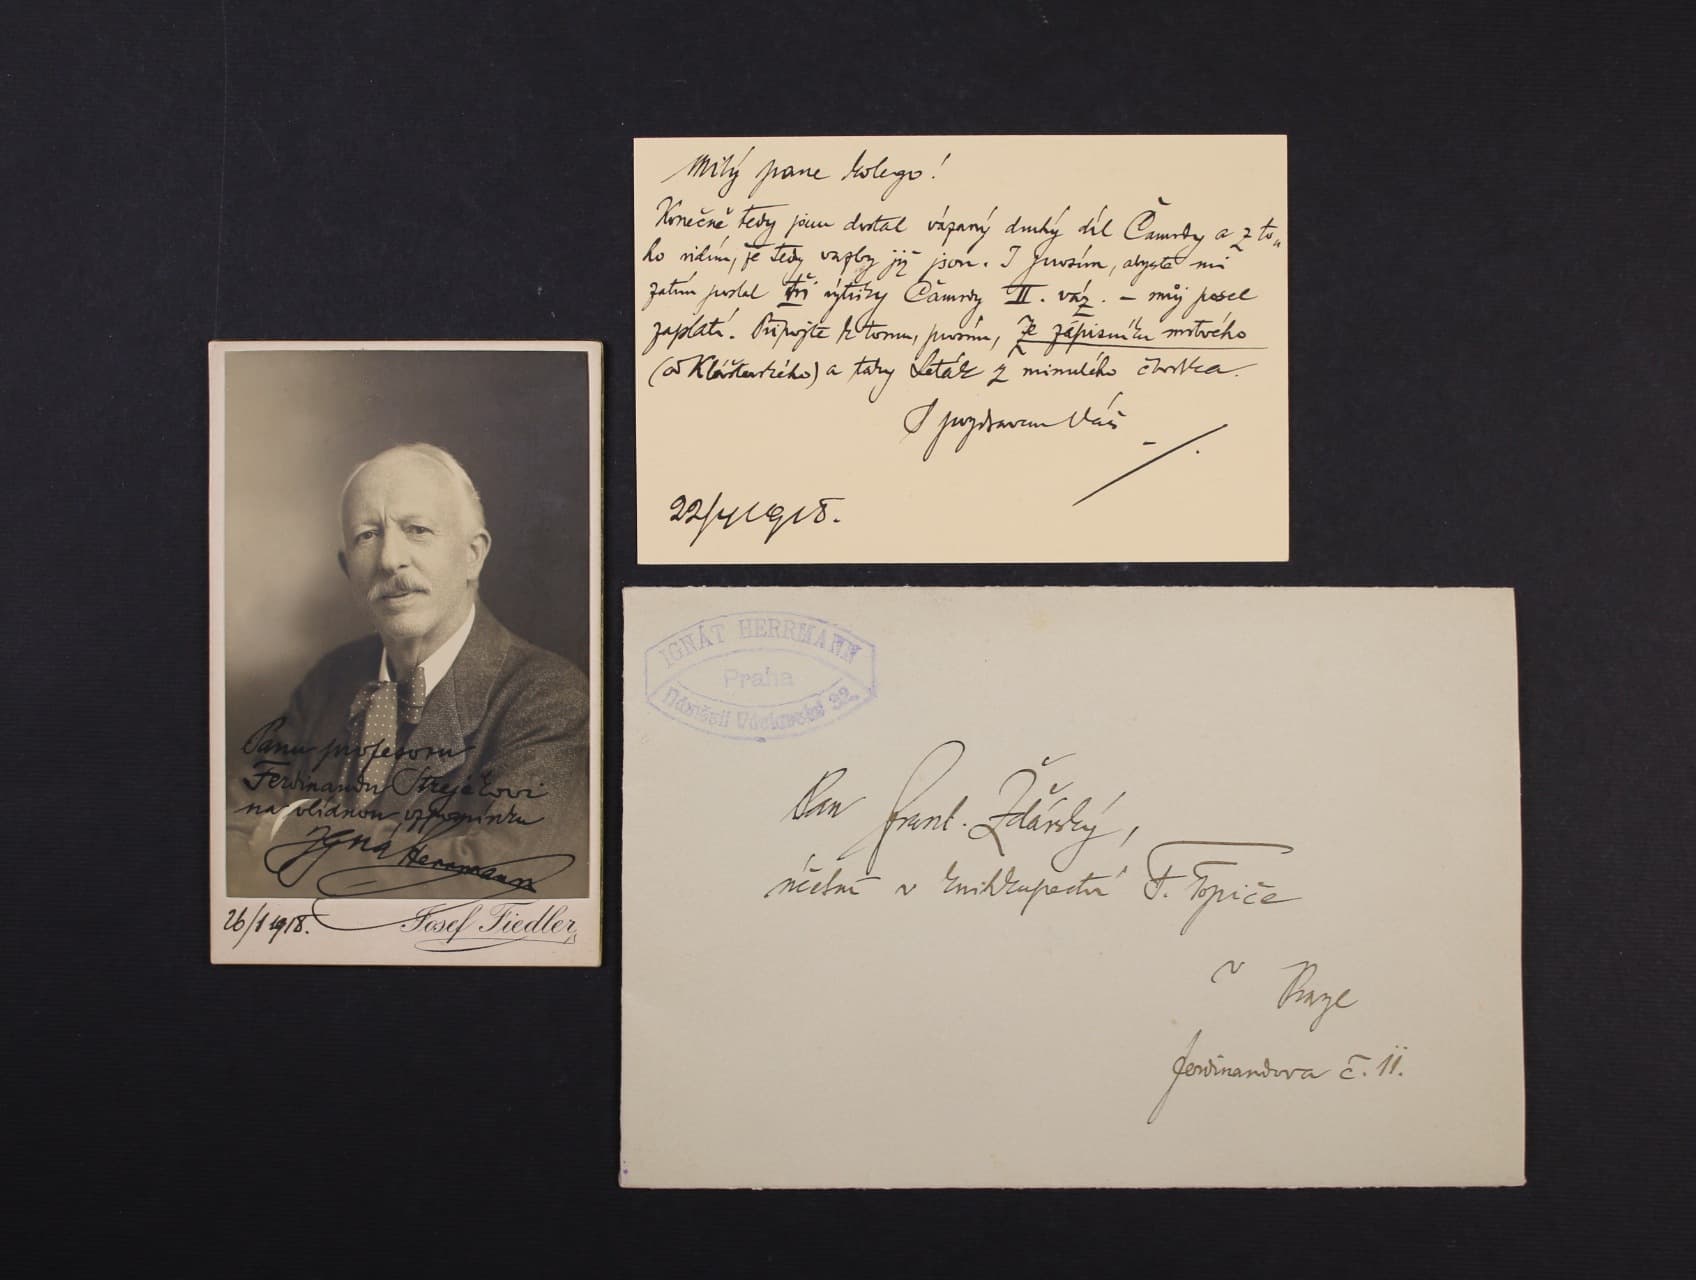 Milý pane kolego!
Konečně tedy jsem dostal vázaný druhý díl Čamrdy a z to„
ho vidím, že tedy vazby již jsou. I prosím, abyste mi
zatím poslal tři výtisky Čamrdy II. váz. – můj posel
zaplatí. Připojte k tomu, prosím, Ze zápisníku mrtvého
(od Klášterského) a taky Leták z minulého čtvrtka.
S pozdravem Váš
22/4 1918.
Panu profesoru
Ferdinandu Strejčkovi
na vlídnou vzpomínku
Ignát Herrmann
26/1 1918.
Josef Fiedler
IGNÁT HERRMANN
Praha
Náměstí Václavské 32
Pan Frant. Žďárský,
účetní v knihkupectví F. Topiče
v Praze
Ferdinandova č. 11.